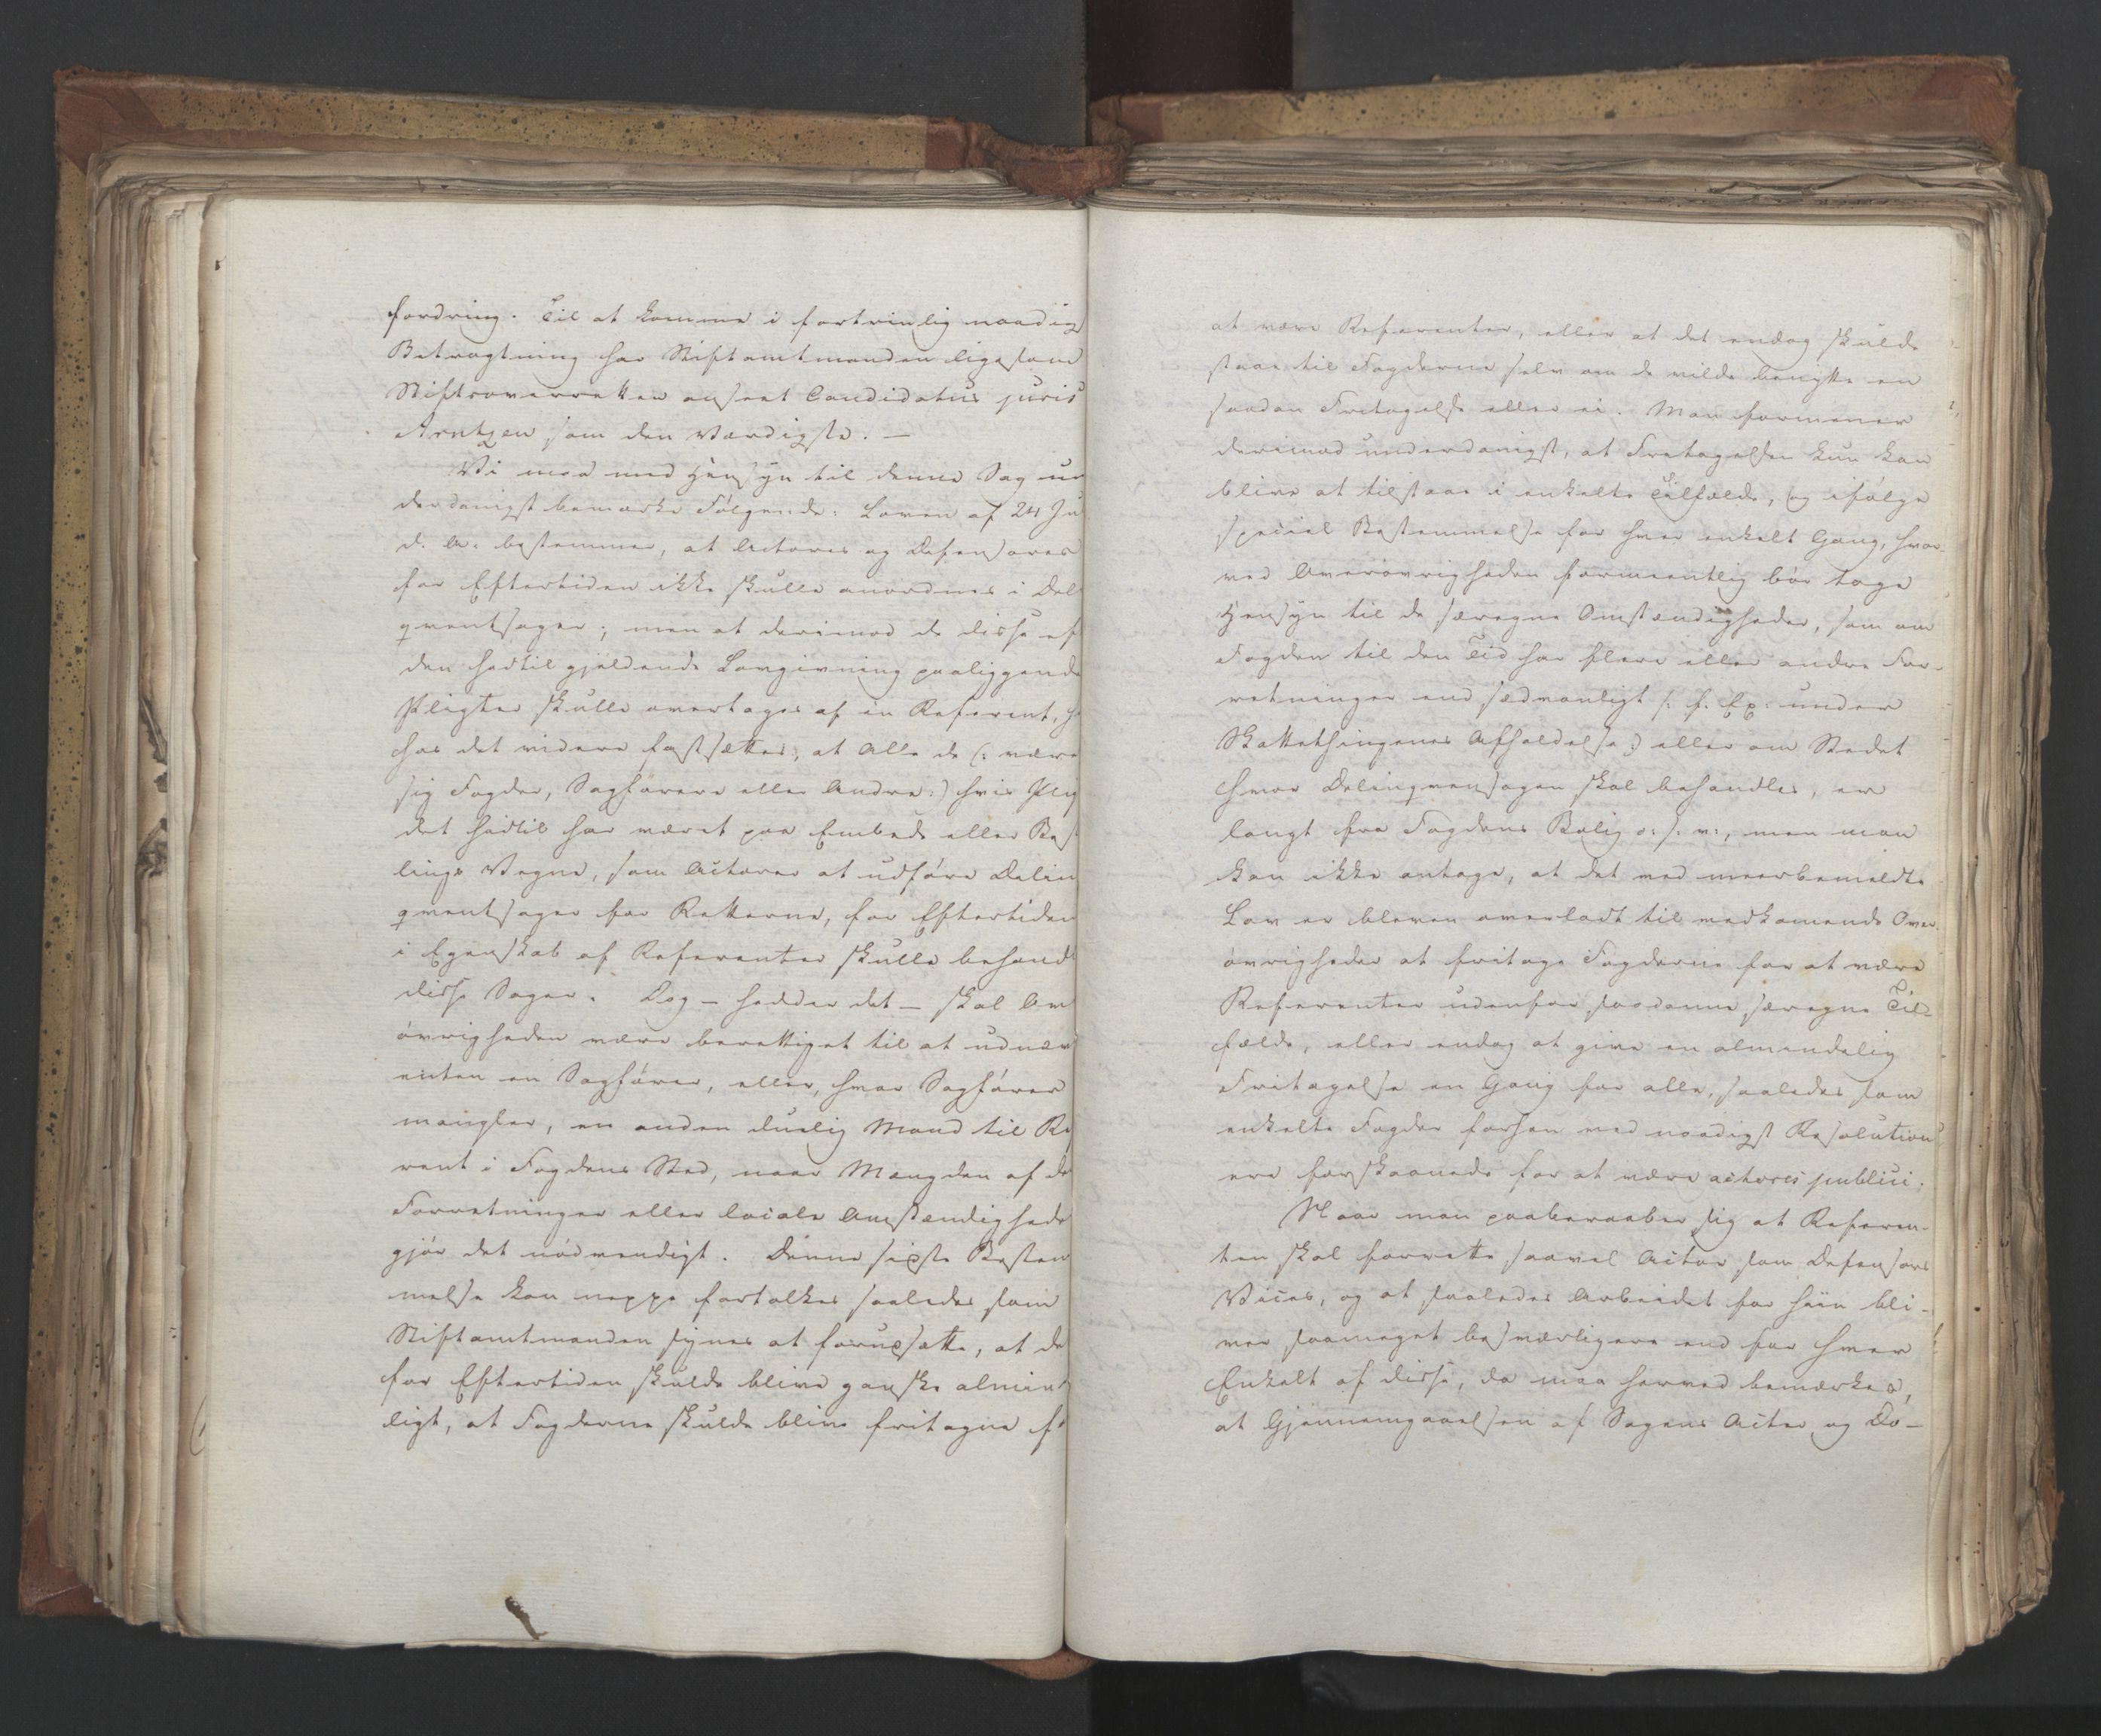 fordring. Til at komme i fortrinlig naadig
Betragtning har Stiftamtmanden ligesom
Stiftsoverretten anseet Candidatus juris
Arntzen som den Værdigste. —
Vi maa med Hensyn til denne Sag un
derdanigst bemærke Følgende: Loven af 24 Ju
d. A. bestemmer, at Actores og Defensores
for Eftertiden ikke skulle anordnes i Del
qventsager; men at derimod de disse ef
den hidtil gjeldende Lovgivning paaliggende
Pligter skulle overtages af en Referent, h
hos det videre fastsættes, at Alle de (: være
sig Fogder, Sagførere eller Andre:) hvis Plig
det hidtil har været paa Embeds eller Bes
lings Vegne, som Actorer at udføre Delin
qventsager for Retterne, for Eftertiden
i Egenskab af Referenter skulle behand
disse Sager. Dog — hedder det — skal Ov
øvrigheden være berettiget til at udnæv
enten en Sagfører, eller, hvor Sagfører
mangler, en anden duelig Mand til Re
rent i Fogdens Sted, naar Mængden af de
Forretninger eller locale Omstændighede
gjør det nødvendigt. Denne sidste Bestem
melse kan neppe fortolkes saaledes som
Stiftamtmanden synes at forudsætte, at de
for Eftertiden skulde blive ganske almin
ligt, at Fogderne skulde blive fritagne f
at være Referenter, eller at det endog skulde
staae til Fogderne selv om de vilde benytte en
saadan Fritagelse eller ei. Man formener
derimod underdanigst, at Fritagelsen kun kan
blive at tilstaae i enkelte Tilfælde, og ifølge
speciel Bestemmelse for hver enkelt Gang, hvor-
ved Overøvrigheden formeentlig bør tage
Hensyn til de særegne Omstændigheder, som om
Fogden til den Tid har flere eller andre For-
retninger end sædvanligt (: f. Ex. under
Skattethingenes Afholdelse:) eller om Stedet
hvor Delinqvensagen skal behandles, er
langt fra Fogdens Bolig o: s. v:, men man
kan ikke antage, at det ved meerbemeldte
Lov er bleven overladt til vedkomende Over
øvrigheder at fritage Fogderne for at være
Referenter udenfor saadanne særegne Til-
fælde, eller endog at give en almindelig
Fritagelse en Gang for alle, saaledes som
enkelte Fogder forhen ved naadigst Resolution
ere forskaanede for at være actores publici.
Naar man paaberaaber sig at Referen-
ten skal forrette saavel Actor som Defensors
Vices, og at saaledes Arbeidet for ham bli-
ver saameget besværligere end for hver
Enkelt af disse, da maa herved bemærkes,
at Gjennemgaaelsen af Sagens Acter og Do-